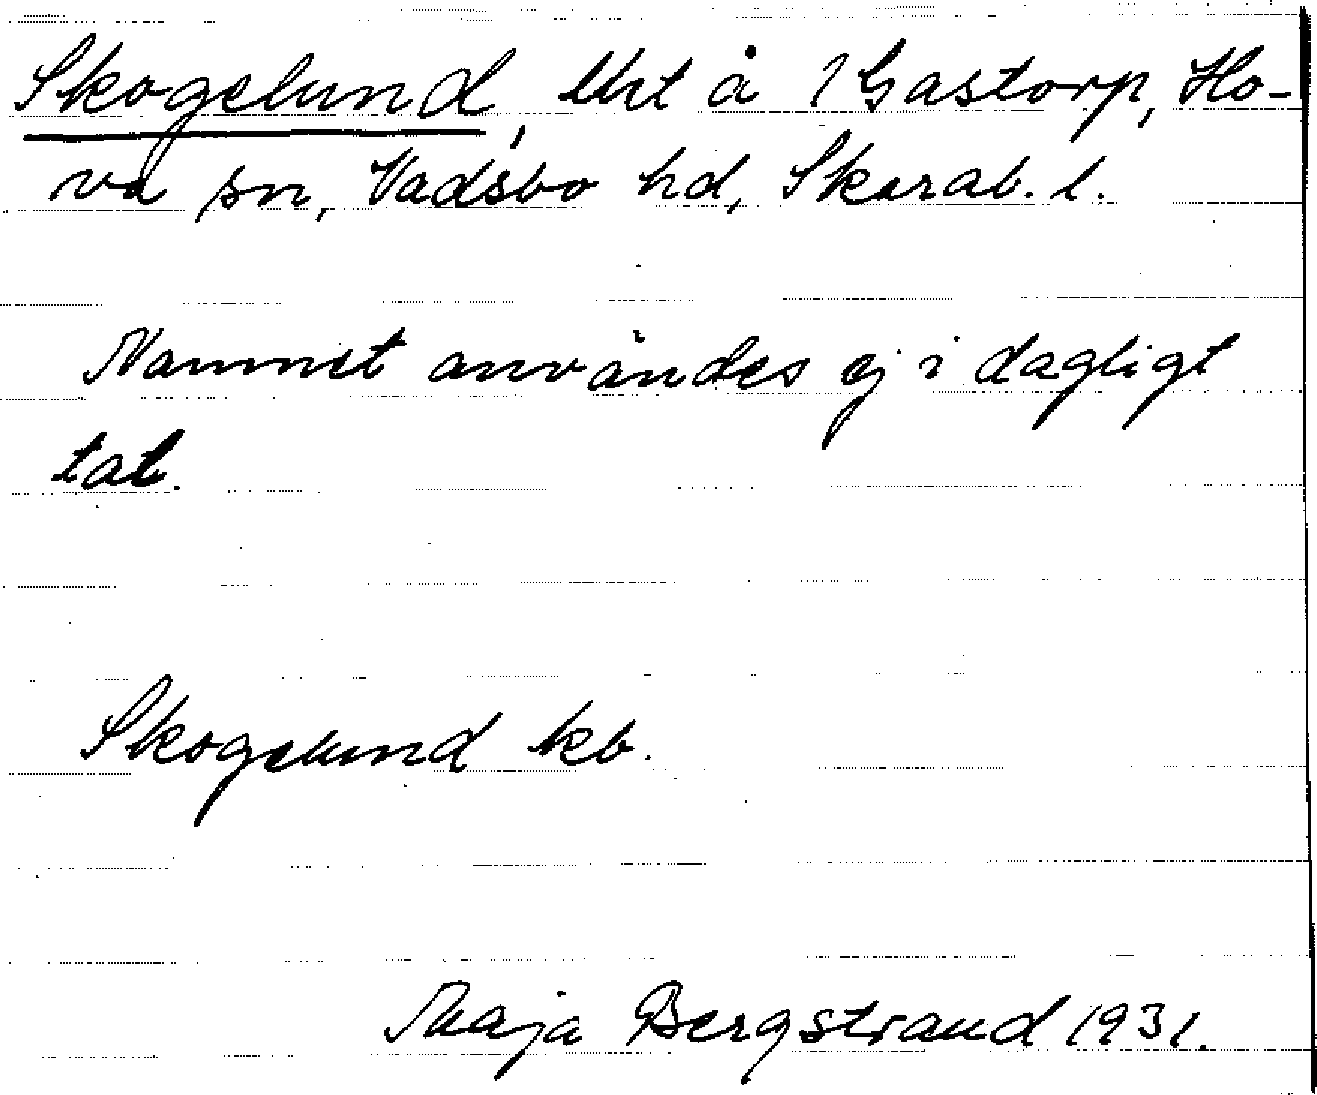 Skogelund, lht å Gastorp, Ho-
va sn, Vadsbo hd, Skarab. l.
Namnet användes ej i dagligt
tal.
Skogelund kb.
Maja Bergstrand 1931.